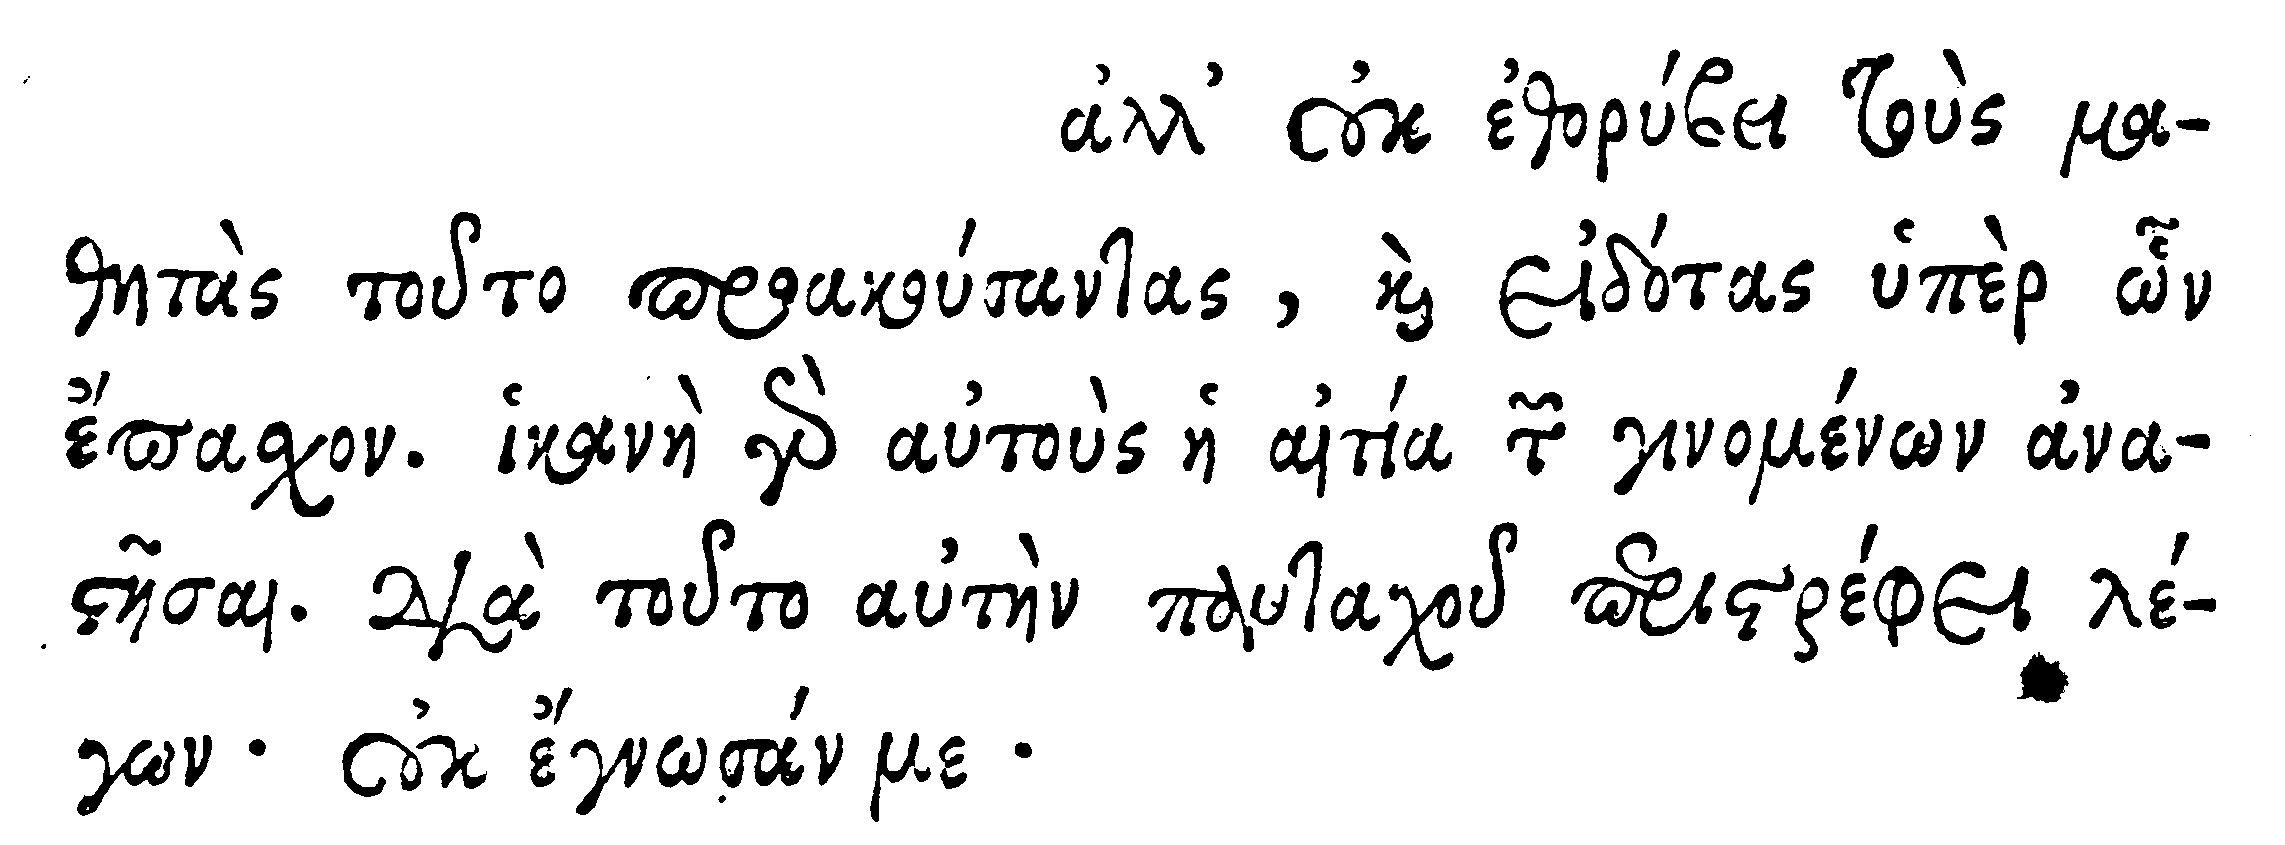 ἀλλ’ οὐκ ἐθορύβει τοὺς μα-
θητὰς τοῦτο προακούσαντας, καὶ εἰδότας ὑπὲρ ὧν
ἔπασχον. ἱκανὴ γὰρ αὐτοὺς ἡ αἰτία τῶν γινομένων ἀνα-
στῆσαι. διὰ τοῦτο αὐτὴν πανταχοῦ περιστρέφει λέ-
γων· οὐκ ἔγνωσάν με·